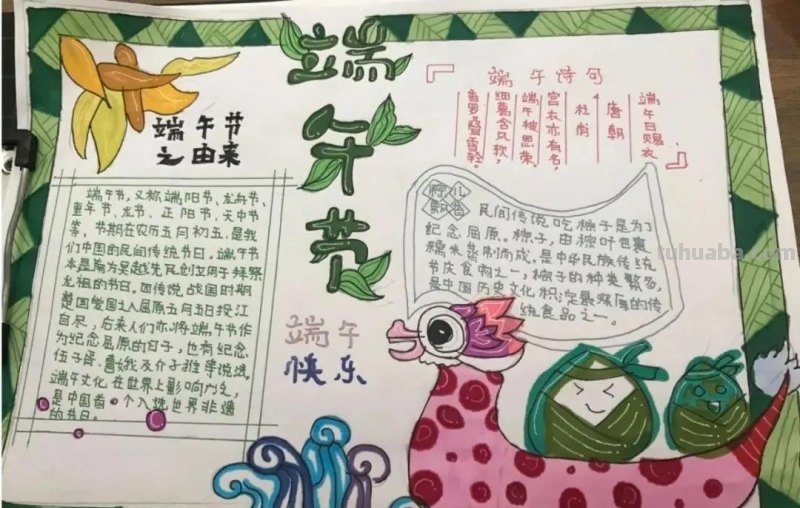 端午节
端午节
之由来
端午节,又称端阳节、龙舟节、
重午节、龙节、正阳节、天中节
等,节期在农历五月初五,是我
们中国的民间传统节日。端午节
本是南方吴越先民创立用于拜祭
龙祖的节日。因传说战国时期
楚国爱国之人屈原五月五日投江
自尽,后来人们亦将端午节作
为纪念屈原的日子,也有纪念
伍子胥、曹娥及介子推等说法
端午文化在世界上影响广泛,
是中国首个入选世界非遗
的节日。
端午
快乐
端午诗句
端午日赐衣
唐朝
杜甫
宫衣亦有名,
端午被恩荣。
细葛含风软,
香罗叠雪轻。
粽儿
飘香
民间传说吃粽子是为了
纪念屈原。粽子,由粽叶包裹
糯米蒸制而成,是中华民族传统
节庆食物之一,粽子的种类繁多,
是中国历史文化积淀最深厚的传
统食品之一。
tuhuaba.com